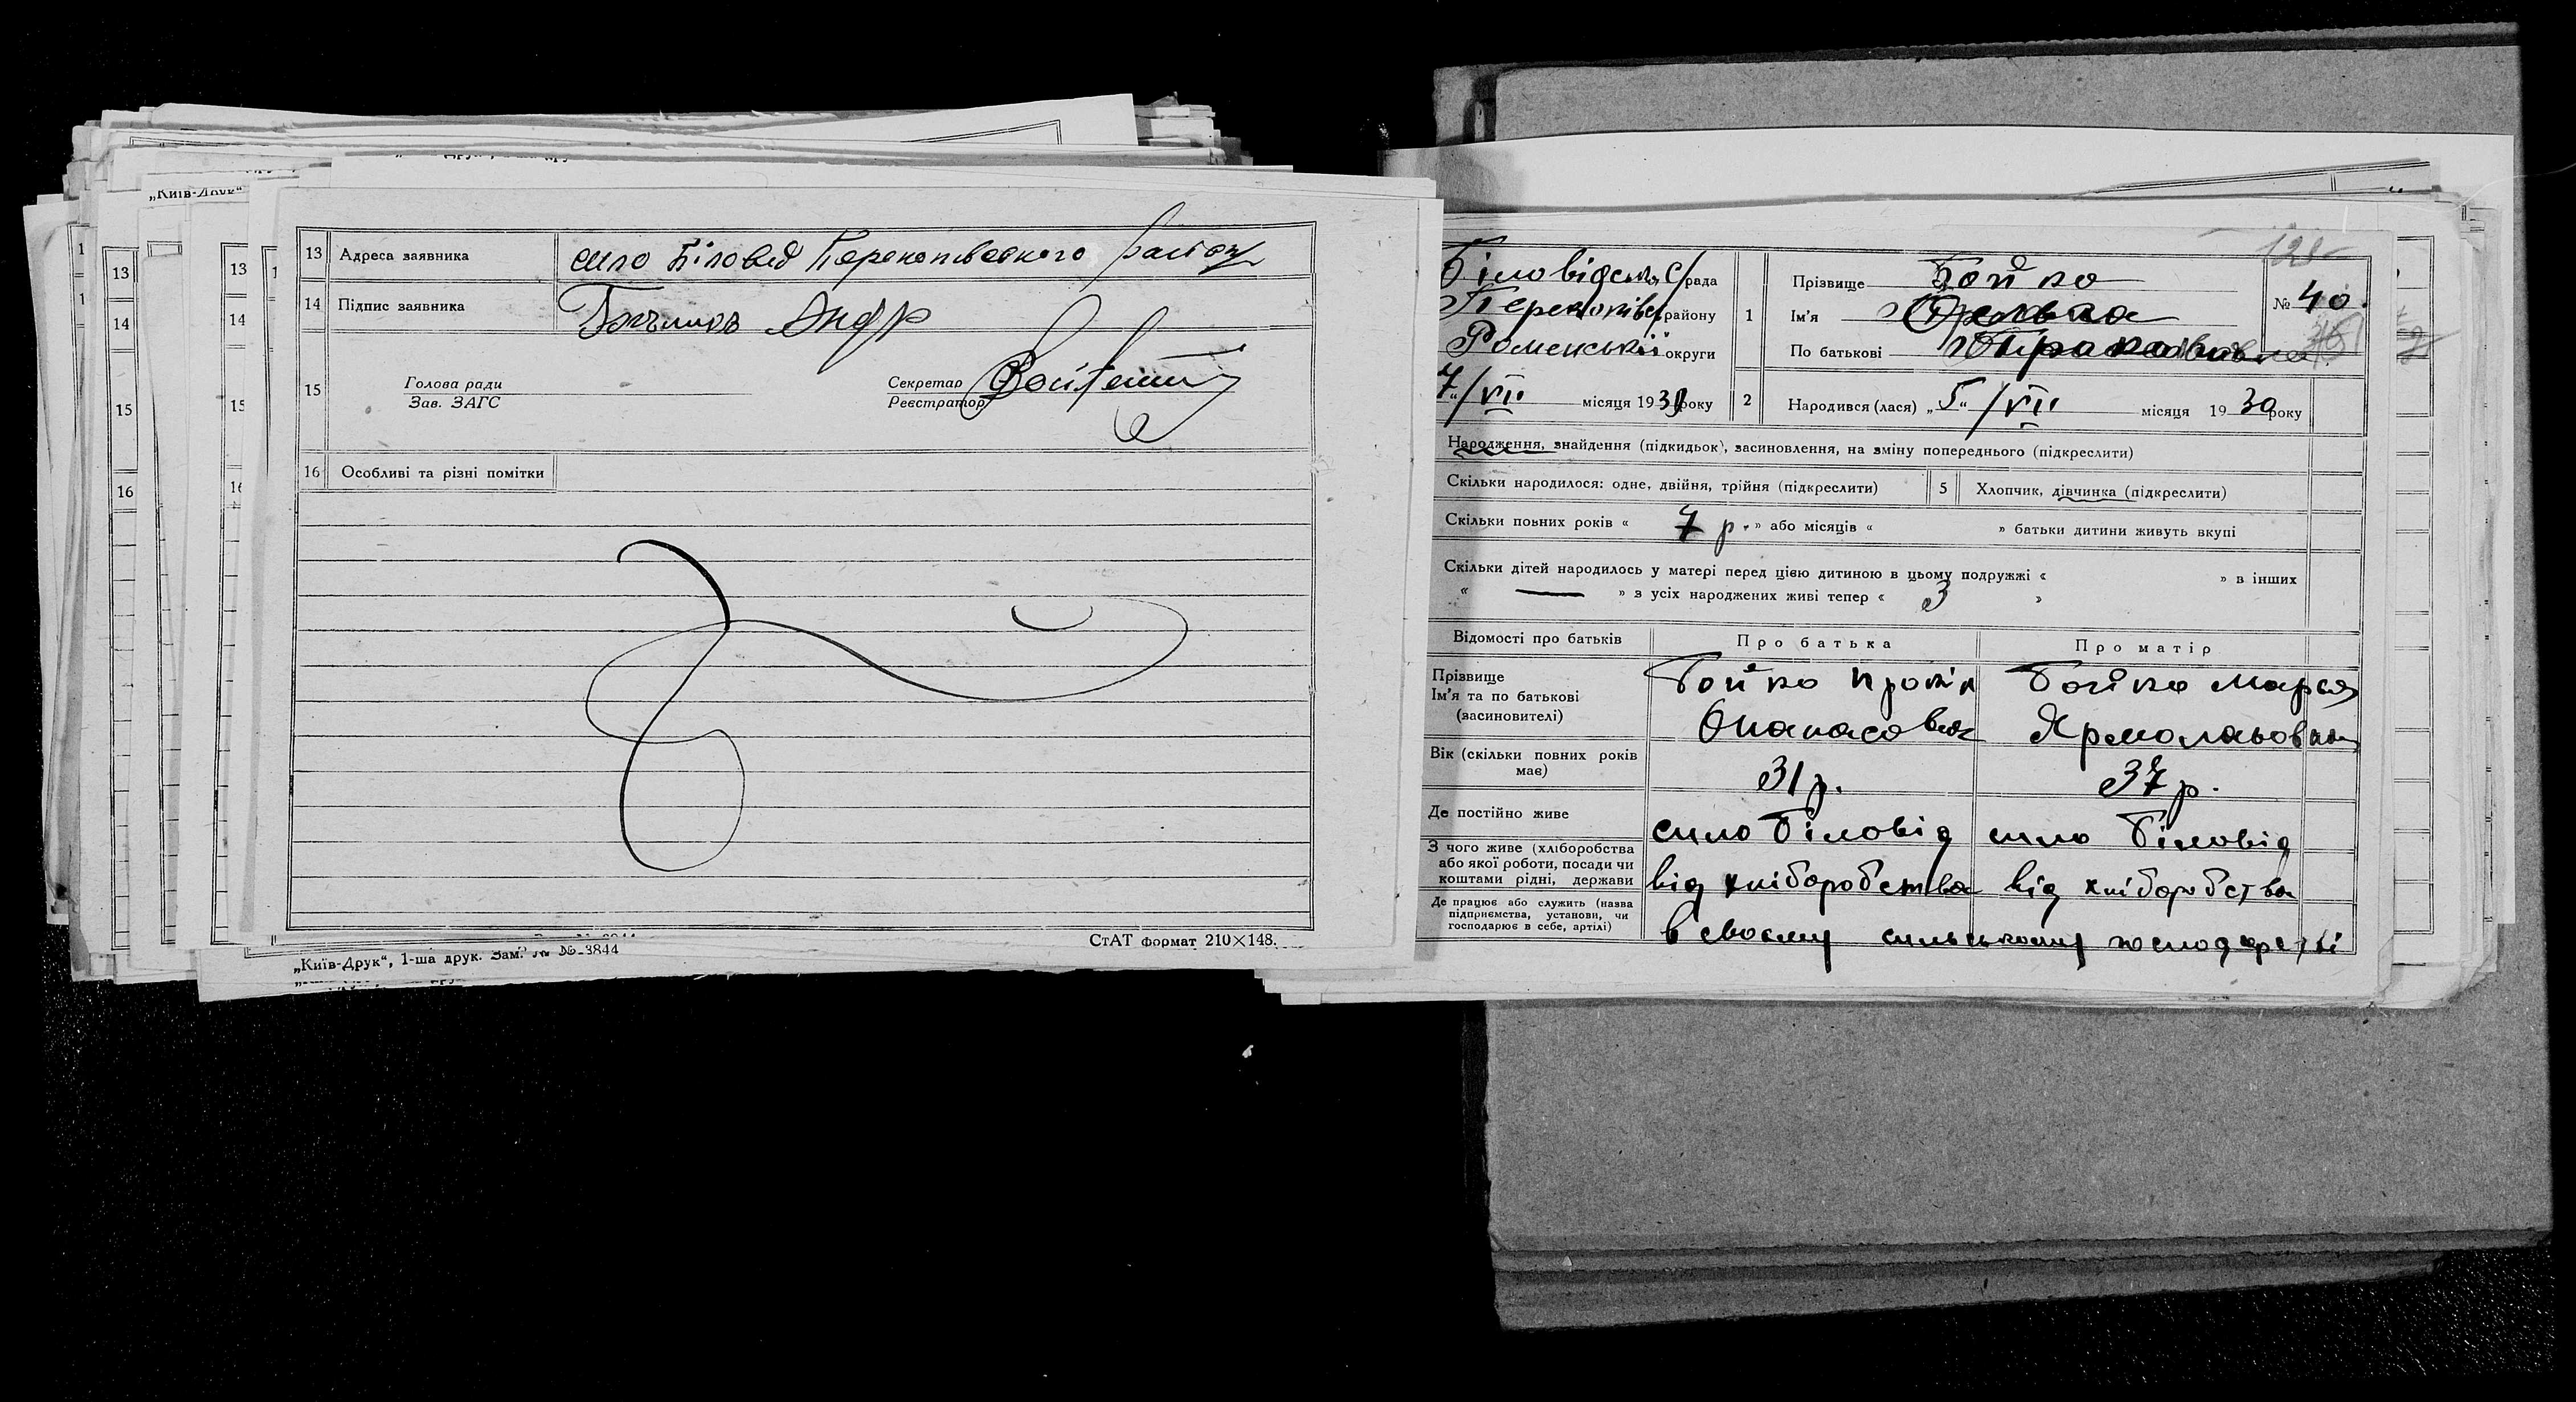 „Київ-Друк“
13 Адреса заявника село Біловод Перекопівського району
14 Підпис заявника
15 Голова ради
Зав. ЗАГС
Секретар
Реєстратор
16 Особливі та різні помітки
СтАТ формат 210×148.
„Київ-Друк“, 1-ша друк. Зам. № 3844
Біловідська С/рада
Перекопівськ району
Роменської округи
7/VII місяця 1930 року
1 Прізвище Бойко
Ім'я
По батькові Проковівна
№ 40.
2 Народився (лася) „5“ /VII місяця 1930 року
Народження, знайдення (підкидьок), засиновлення, на зміну попереднього (підкреслити)
Скільки народилося: одне, двійня, трійня (підкреслити)
5 Хлопчик, дівчинка (підкреслити)
Скільки повних років « 7 р. » або місяців « » батьки дитини живуть вкупі
Скільки дітей народилось у матері перед цією дитиною в цьому подружжі « » в інших
« — » з усіх народжених живі тепер « 3 »
Відомості про батьків Про батька Про матір
Прізвище
Ім'я та по батькові
(засиновителі)
Бойко Прокіп
Опанасович
Бойко Марія
Ярмолаьовна
Вік (скільки повних років
має)
31 р. 37 р.
Де постійно живе село Біловід село Біловід
З чого живе (хліборобства
або якої роботи, посади чи
коштами рідні, держави
від хліборобства від хліборобства
Де працює або служить (назва
підприємства, установи, чи
господарює в себе, артілі)
в своєму сильському господарстві